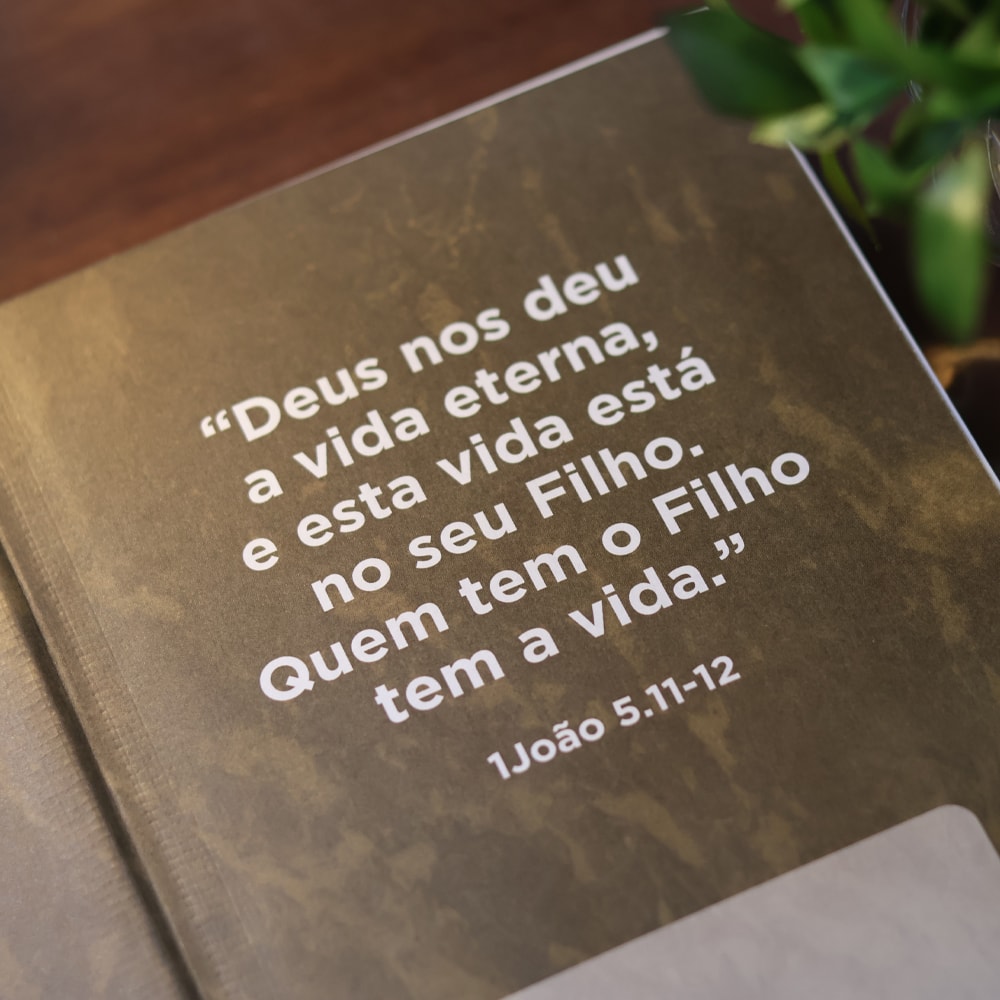 “Deus nos deu
a vida eterna,
e esta vida está
no seu Filho.
Quem tem o Filho
tem a vida.”
1João 5.11-12